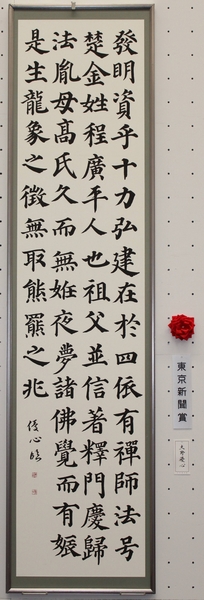 發明資乎十力弘建在於四依有禪師法号
楚金姓程廣平人也祖父並信著釋門慶歸
法胤母髙氏久而無姙夜夢諸佛覺而有娠
是生龍象之徵無取熊羆之兆
東京新聞賞